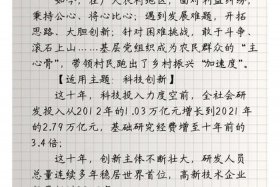 秉持公心、将心比心；遇到发展难题，开拓
思路、大胆创新；针对困难挑战，敢于斗争、
滚石上山……基层党组织成为农民群众的“主
心骨”，带领村民跑出了乡村振兴“加速度”。
【适用主题：科技创新】
这十年，科技投入力度空前，全社会研
发投入从2012年的1.03万亿元增长到2021年
的2.79万亿元，基础研究经费增至十年前的
3.4倍；
这十年，创新主体不断壮大，研发人员
总量连续多年稳居世界首位，高新技术企业